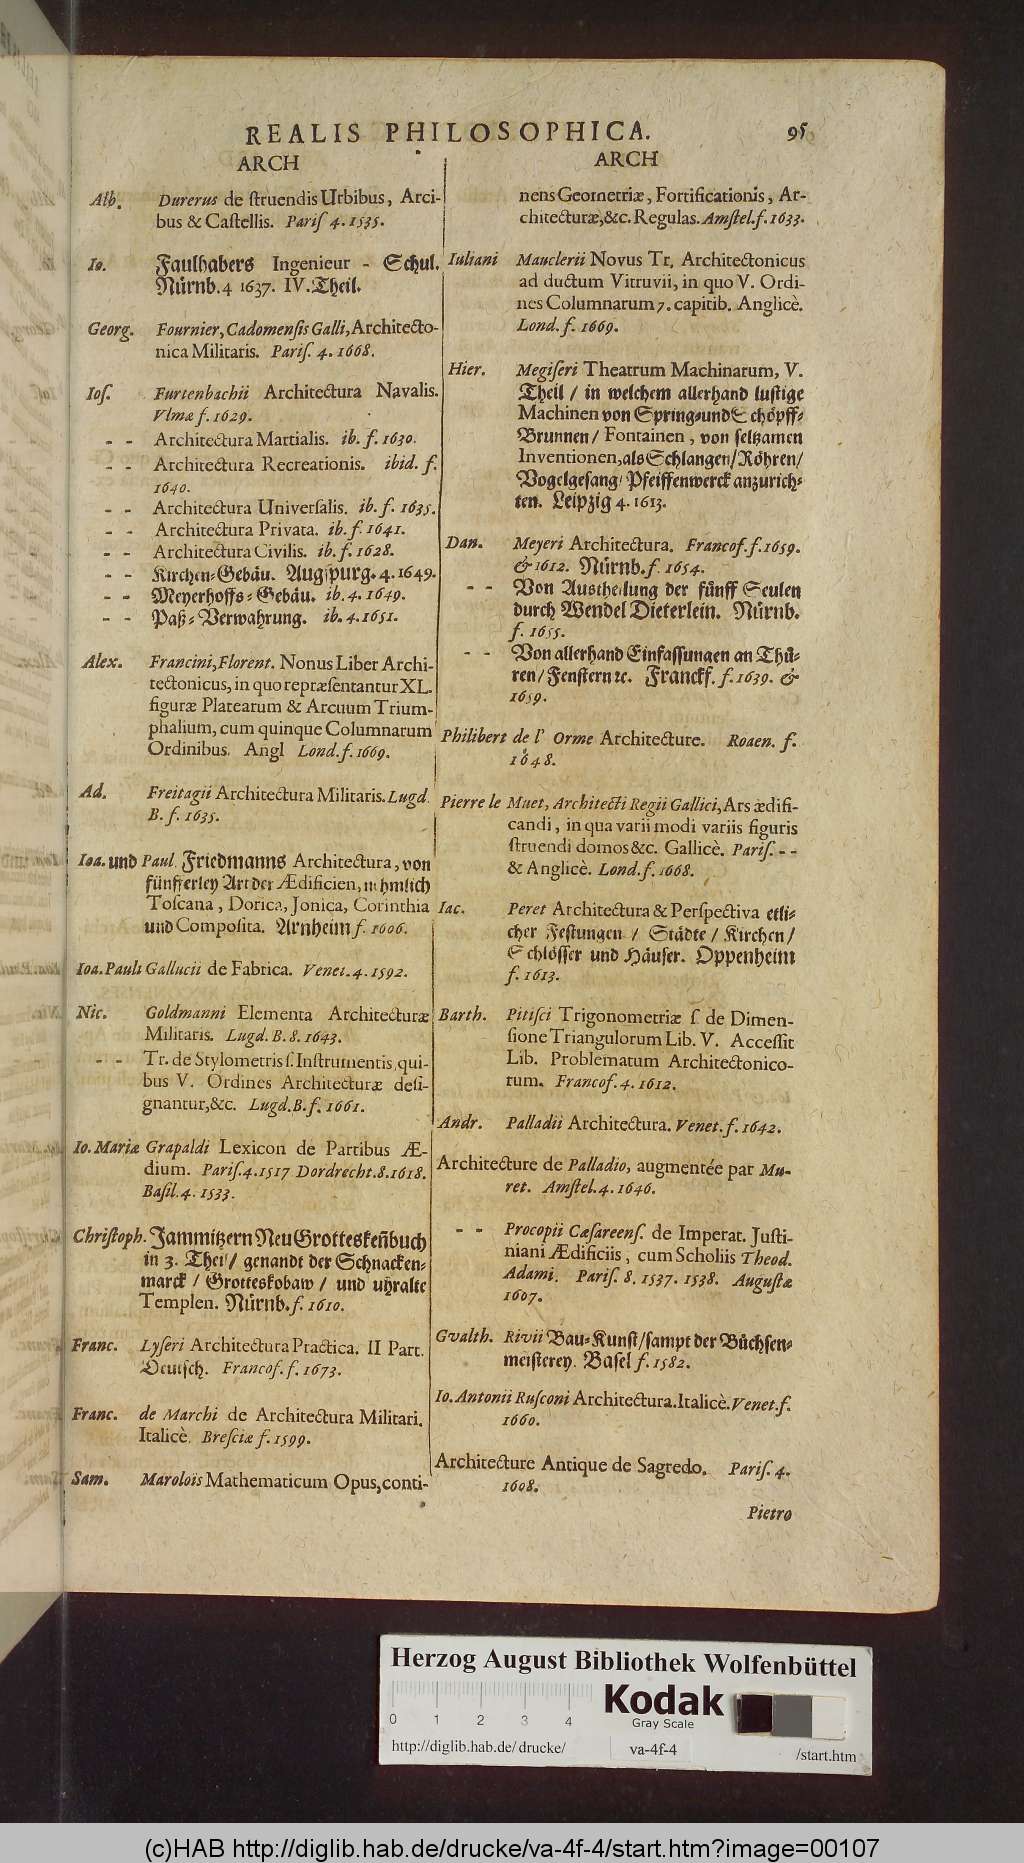 REALIS PHILOSOPHICA. 95
ARCH
Alb. Durerus de struendis Urbibus, Arci-
bus & Castellis. Paris 4. 1535.
Io. Faulhabers Ingenieur - Schul.
Nürnb. 4 1637. IV. Theil.
Georg. Fournier, Cadomensis Galli, Architecto-
nica Militaris. Paris. 4. 1668.
Ios. Furtenbachii Architectura Navalis.
Vlmæ f. 1629.
- - Architectura Martialis. ib. f. 1630.
- - Architectura Recreationis. ibid. f.
1640.
- - Architectura Universalis. ib. f. 1635.
- - Architectura Privata. ib. f. 1641.
- - Architectura Civilis. ib. f. 1628.
- - Kirchen-Gebäu. Augspurg. 4. 1649.
- - Meyerhoffs-Gebäu. ib. 4. 1649.
- - Paß-Verwahrung. ib. 4. 1651.
Alex. Francini, Florent. Nonus Liber Archi-
tectonicus, in quo repræsentantur XL.
figuræ Platearum & Arcuum Trium-
phalium, cum quinque Columnarum
Ordinibus. Angl Lond. f. 1669.
Ad. Freitagii Architectura Militaris. Lugd.
B. f. 1635.
Ioa. und Paul. Friedmanns Architectura, von
fünfferley Art der Ædificien, nehmlich
Toscana, Dorica, Jonica, Corinthia
und Composita. Arnheim f. 1606.
Ioa. Pauli Gallucii de Fabrica. Venet. 4. 1592.
Nic. Goldmanni Elementa Architecturæ
Militaris. Lugd. B. 8. 1643.
- - Tr. de Stylometris s. Instrumentis, qui-
bus V. Ordines Architecturæ desi-
gnantur, &c. Lugd. B. f. 1661.
Io. Mariæ Grapaldi Lexicon de Partibus Æ-
dium. Paris. 4. 1517 Dordrecht. 8. 1618.
Basil. 4. 1533.
Christoph. Jammitzern Neu Grotteskeñbuch
in 3. Theil / genandt der Schnacken-
marck / Grotteskobaw / und uhralte
Templen. Nürnb. f. 1610.
Franc. Lyseri Architectura Practica. II Part.
Deutsch. Francof. f. 1673.
Franc. de Marchi de Architectura Militari.
Italicè. Bresciæ f. 1599.
Sam. Marolois Mathematicum Opus, conti-
ARCH
nens Geometriæ, Fortificationis, Ar-
chitecturæ, &c. Regulas. Amstel. f. 1633.
Iuliani Mauclerii Novus Tr. Architectonicus
ad ductum Vitruvii, in quo V. Ordi-
nes Columnarum 7. capitib. Anglicè.
Lond. f. 1669.
Hier. Megiseri Theatrum Machinarum, V.
Theil / in welchem allerhand lustige
Machinen von Spring- und Schöpff-
Brunnen / Fontainen, von seltzamen
Inventionen, als Schlangen / Röhren /
Vogelgesang / Pfeiffenwerck anzurich-
ten. Leipzig 4. 1613.
Dan. Meyeri Architectura. Francof. f. 1659.
& 1612. Nürnb. f. 1654.
- - Von Austheilung der fünff Seulen
durch Wendel Dieterlein. Nürnb.
f. 1655.
- - Von allerhand Einfassungen an Thü-
ren / Fenstern ꝛc. Franckf. f. 1639. &
1659.
Philibert de l' Orme Architecture. Roaen. f.
1648.
Pierre le Muet, Architecti Regii Gallici, Ars ædifi-
candi, in qua varii modi variis figuris
struendi domos &c. Gallicè. Paris. - -
& Anglicè. Lond. f. 1668.
Iac. Peret Architectura & Perspectiva etli-
cher Festungen / Städte / Kirchen /
Schlösser und Häuser. Oppenheim
f. 1613.
Barth. Pitisci Trigonometriæ s. de Dimen-
sione Triangulorum Lib. V. Accessit
Lib. Problematum Architectonico-
rum. Francof. 4. 1612.
Andr. Palladii Architectura. Venet. f. 1642.
Architecture de Palladio, augmentée par Mu-
ret. Amstel. 4. 1646.
- - Procopii Cæsareens. de Imperat. Justi-
niani Ædificiis, cum Scholiis Theod.
Adami. Paris. 8. 1537. 1538. Augustæ
1607.
Gvalth. Rivii Bau-Kunst / sampt der Büchsen-
meisterey. Basel f. 1582.
Io. Antonii Rusconi Architectura. Italicè. Venet. f.
1660.
Architecture Antique de Sagredo. Paris. 4.
1608.
Pietro
Herzog August Bibliothek Wolfenbüttel
0 1 2 3 4
Kodak
Gray Scale
http://diglib.hab.de/drucke/ va-4f-4 /start.htm
(c)HAB http://diglib.hab.de/drucke/va-4f-4/start.htm?image=00107